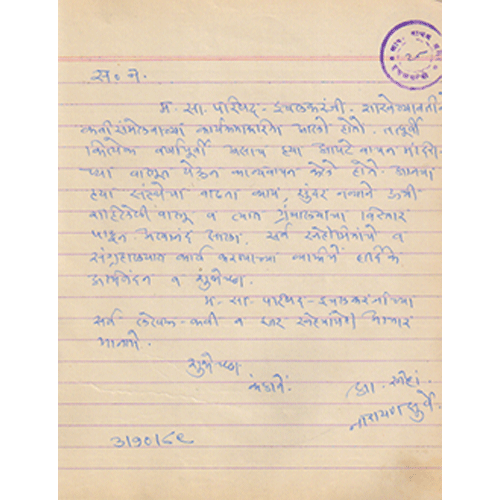 स. न.
म. सा. परिषद - इचलकरंजी. शाखेच्यावतीने
कवीसंमेलनाच्या कार्यक्रमाकरिता आलो होतो. तत्पूर्वी
कित्येक वर्षांपूर्वी असाच ह्या आपटे वाचन मंदिरा-
च्या वास्तूत येऊन काव्यवाचन केले होते. आजचा
ह्या संस्थेचा वाढता व्याप, सुंदर नव्याने उभी
राहिलेली वास्तू व त्यात ग्रंथालयाचा विस्तार
पाहून आनंद झाला. सर्व स्नेहीमित्रांचे व
संग्रहालयात कार्य करणाऱ्या व्यक्तींचे हार्दिक
अभिनंदन व शुभेच्छा.
म. सा. परिषद - इचलकरंजीच्या
सर्व लेखक - कवी व इतर स्नेह्यांचेही आभार
मानतो.
शुभेच्छा
कळावे.
आ. स्नेहां.
नारायण सुर्वे
३।१०।८९